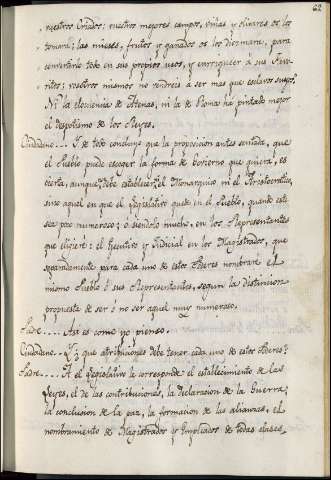 62
vuestros Criados: vuestros mejores campos, viñas y olivares os los
tomará; las mieses, frutos y ganados os los diezmará, para
convertirlo todo en sus propios usos, y enrriquecer a sus Favo-
ritos: vosotros mismos no vendreis à ser mas que esclavos suyos.
Ni la eloqüencia de Atenas, ni la de Roma ha pintado mejor
el despotismo de los Reyes.
Ciudadano.... De todo concluyo que la proposicion antes sentada, que
el Pueblo puede escoger la forma de Govierno que quiera, es
cierta, aunque debe establecer, ni el Monarquico ni el Aristocratico,
sino aquel en que el Legislativo quede en el Pueblo, quando este
sea poco numeroso; ò siendolo mucho, en los Representantes
que elijiere: el Executivo y Judicial en los Magistrados, que
separadamente para cada uno de estos Poderes nombrare el
mismo Pueblo ò sus Representantes, segun la distincion
propuesta de ser ò no ser aquel muy numeroso.
Padre.... Asi es como yo pienso.
Ciudadano.... Y que atribuciones debe tener cada uno de estos Poderes?
Padre.... Al Legislativo le corresponde: el establecimiento de las
Leyes, el de las contribuciones, la declaracion de la Guerra,
la conclusion de la paz, la formacion de las alianzas, el
nombramiento de Magistrados y Empleados de todas clases,